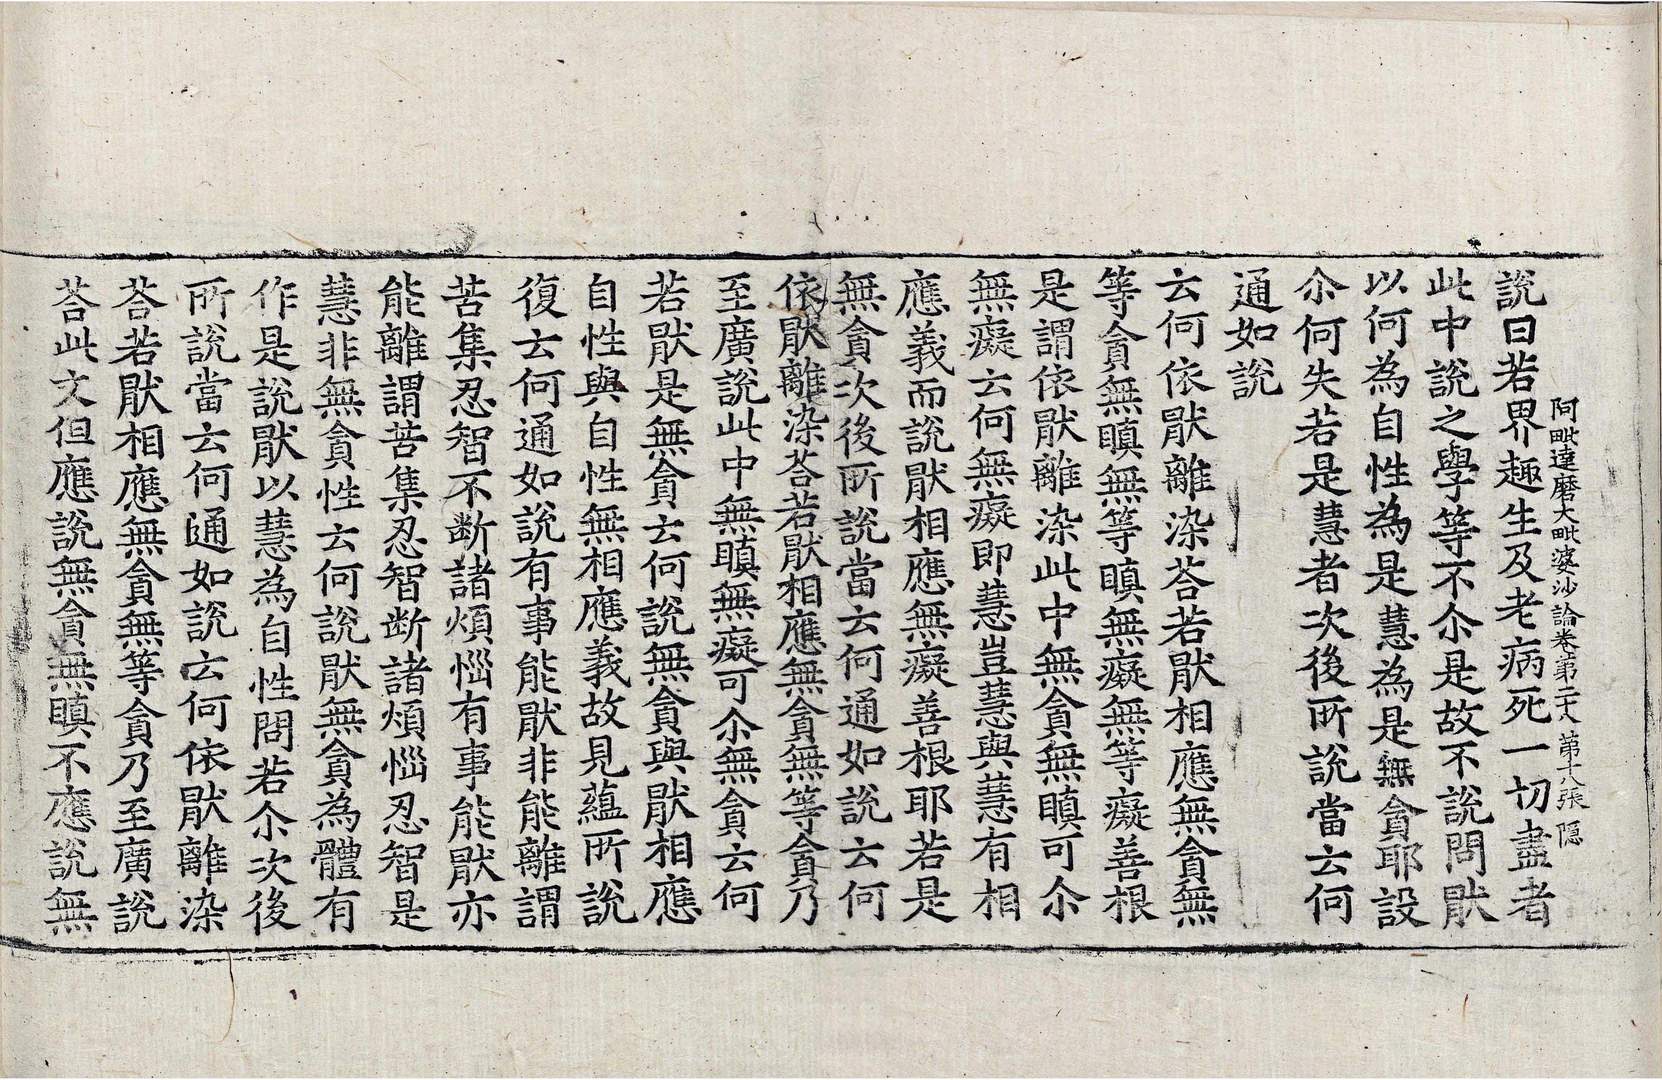 阿毗達磨大毗婆沙論卷第二十八 第十八張 隱
說曰若界趣生及老病死一切盡者
此中說之學等不尒是故不說問猒
以何為自性為是慧為是無貪耶設
尒何失若是慧者次後所說當云何
通如說
云何依猒離染荅若猒相應無貪無
等貪無瞋無等瞋無癡無等癡善根
是謂依猒離染此中無貪無瞋可尒
無癡云何無癡即慧豈慧與慧有相
應義而說猒相應無癡善根耶若是
無貪次後所說當云何通如說云何
依猒離染荅若猒相應無貪無等貪乃
至廣說此中無瞋無癡可尒無貪云何
若猒是無貪云何說無貪與猒相應
自性與自性無相應義故見蘊所說
復云何通如說有事能猒非能離謂
苦集忍智不断諸煩惱有事能猒亦
能離謂苦集忍智断諸煩惱忍智是
慧非無貪性云何說猒無貪為體有
作是說猒以慧為自性問若尒次後
所說當云何通如說云何依猒離染
荅若猒相應無貪無等貪乃至廣說
荅此文但應說無貪無瞋不應說無